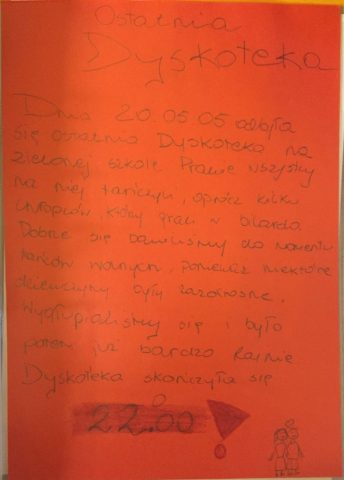 Ostatnia
Dyskoteka
Dnia 20.05.05 odbyła
się ostatnia Dyskoteka na
zielonej szkole Prawie wszyscy
na niej tańczyli, oprócz kilku
chłopców, który grali w bilarda.
Dobrze się bawiliśmy do momentu
tańców wolnych, ponieważ niektóre
dziewczyny były zazdrosne.
Wygłupialiśmy się i było
potem już bardzo fajnie
Dyskoteka skończyła się
o
22.00 !